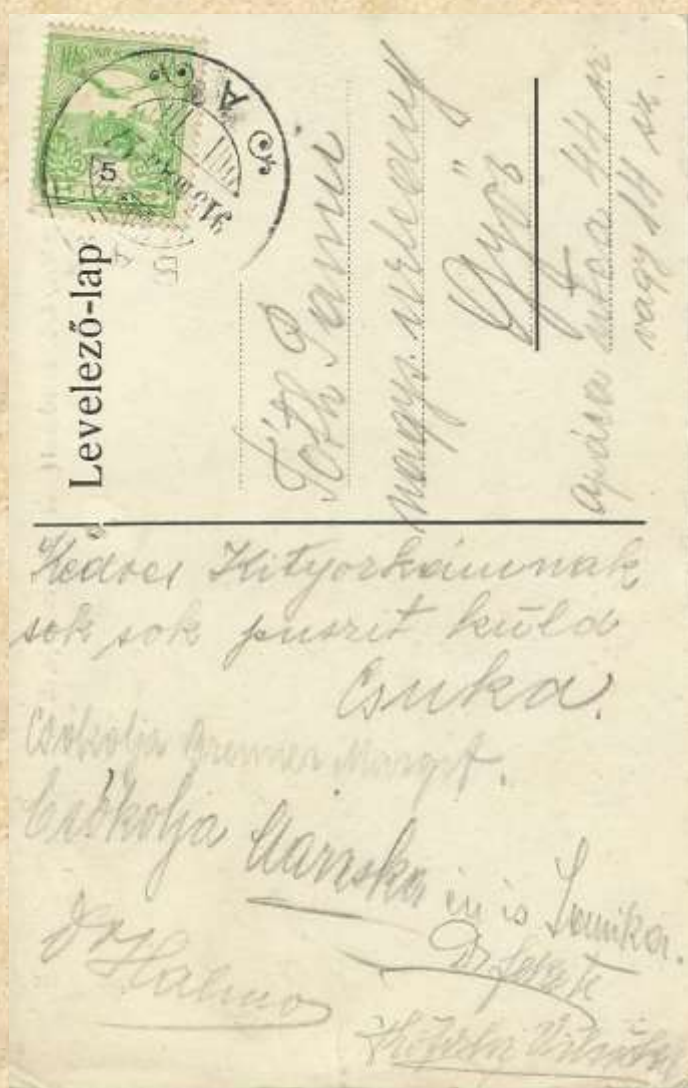 Levelező-lap
5
Tóth
Győr
apáca utca 44 sz
vagy 14 sz.
Kedves Kityorkámnak
sok sok puszit küld
Csuka.
Csókolja Brenner Margit.
Csókolja Mariska én is
Dr Fekete
Dr Halmo